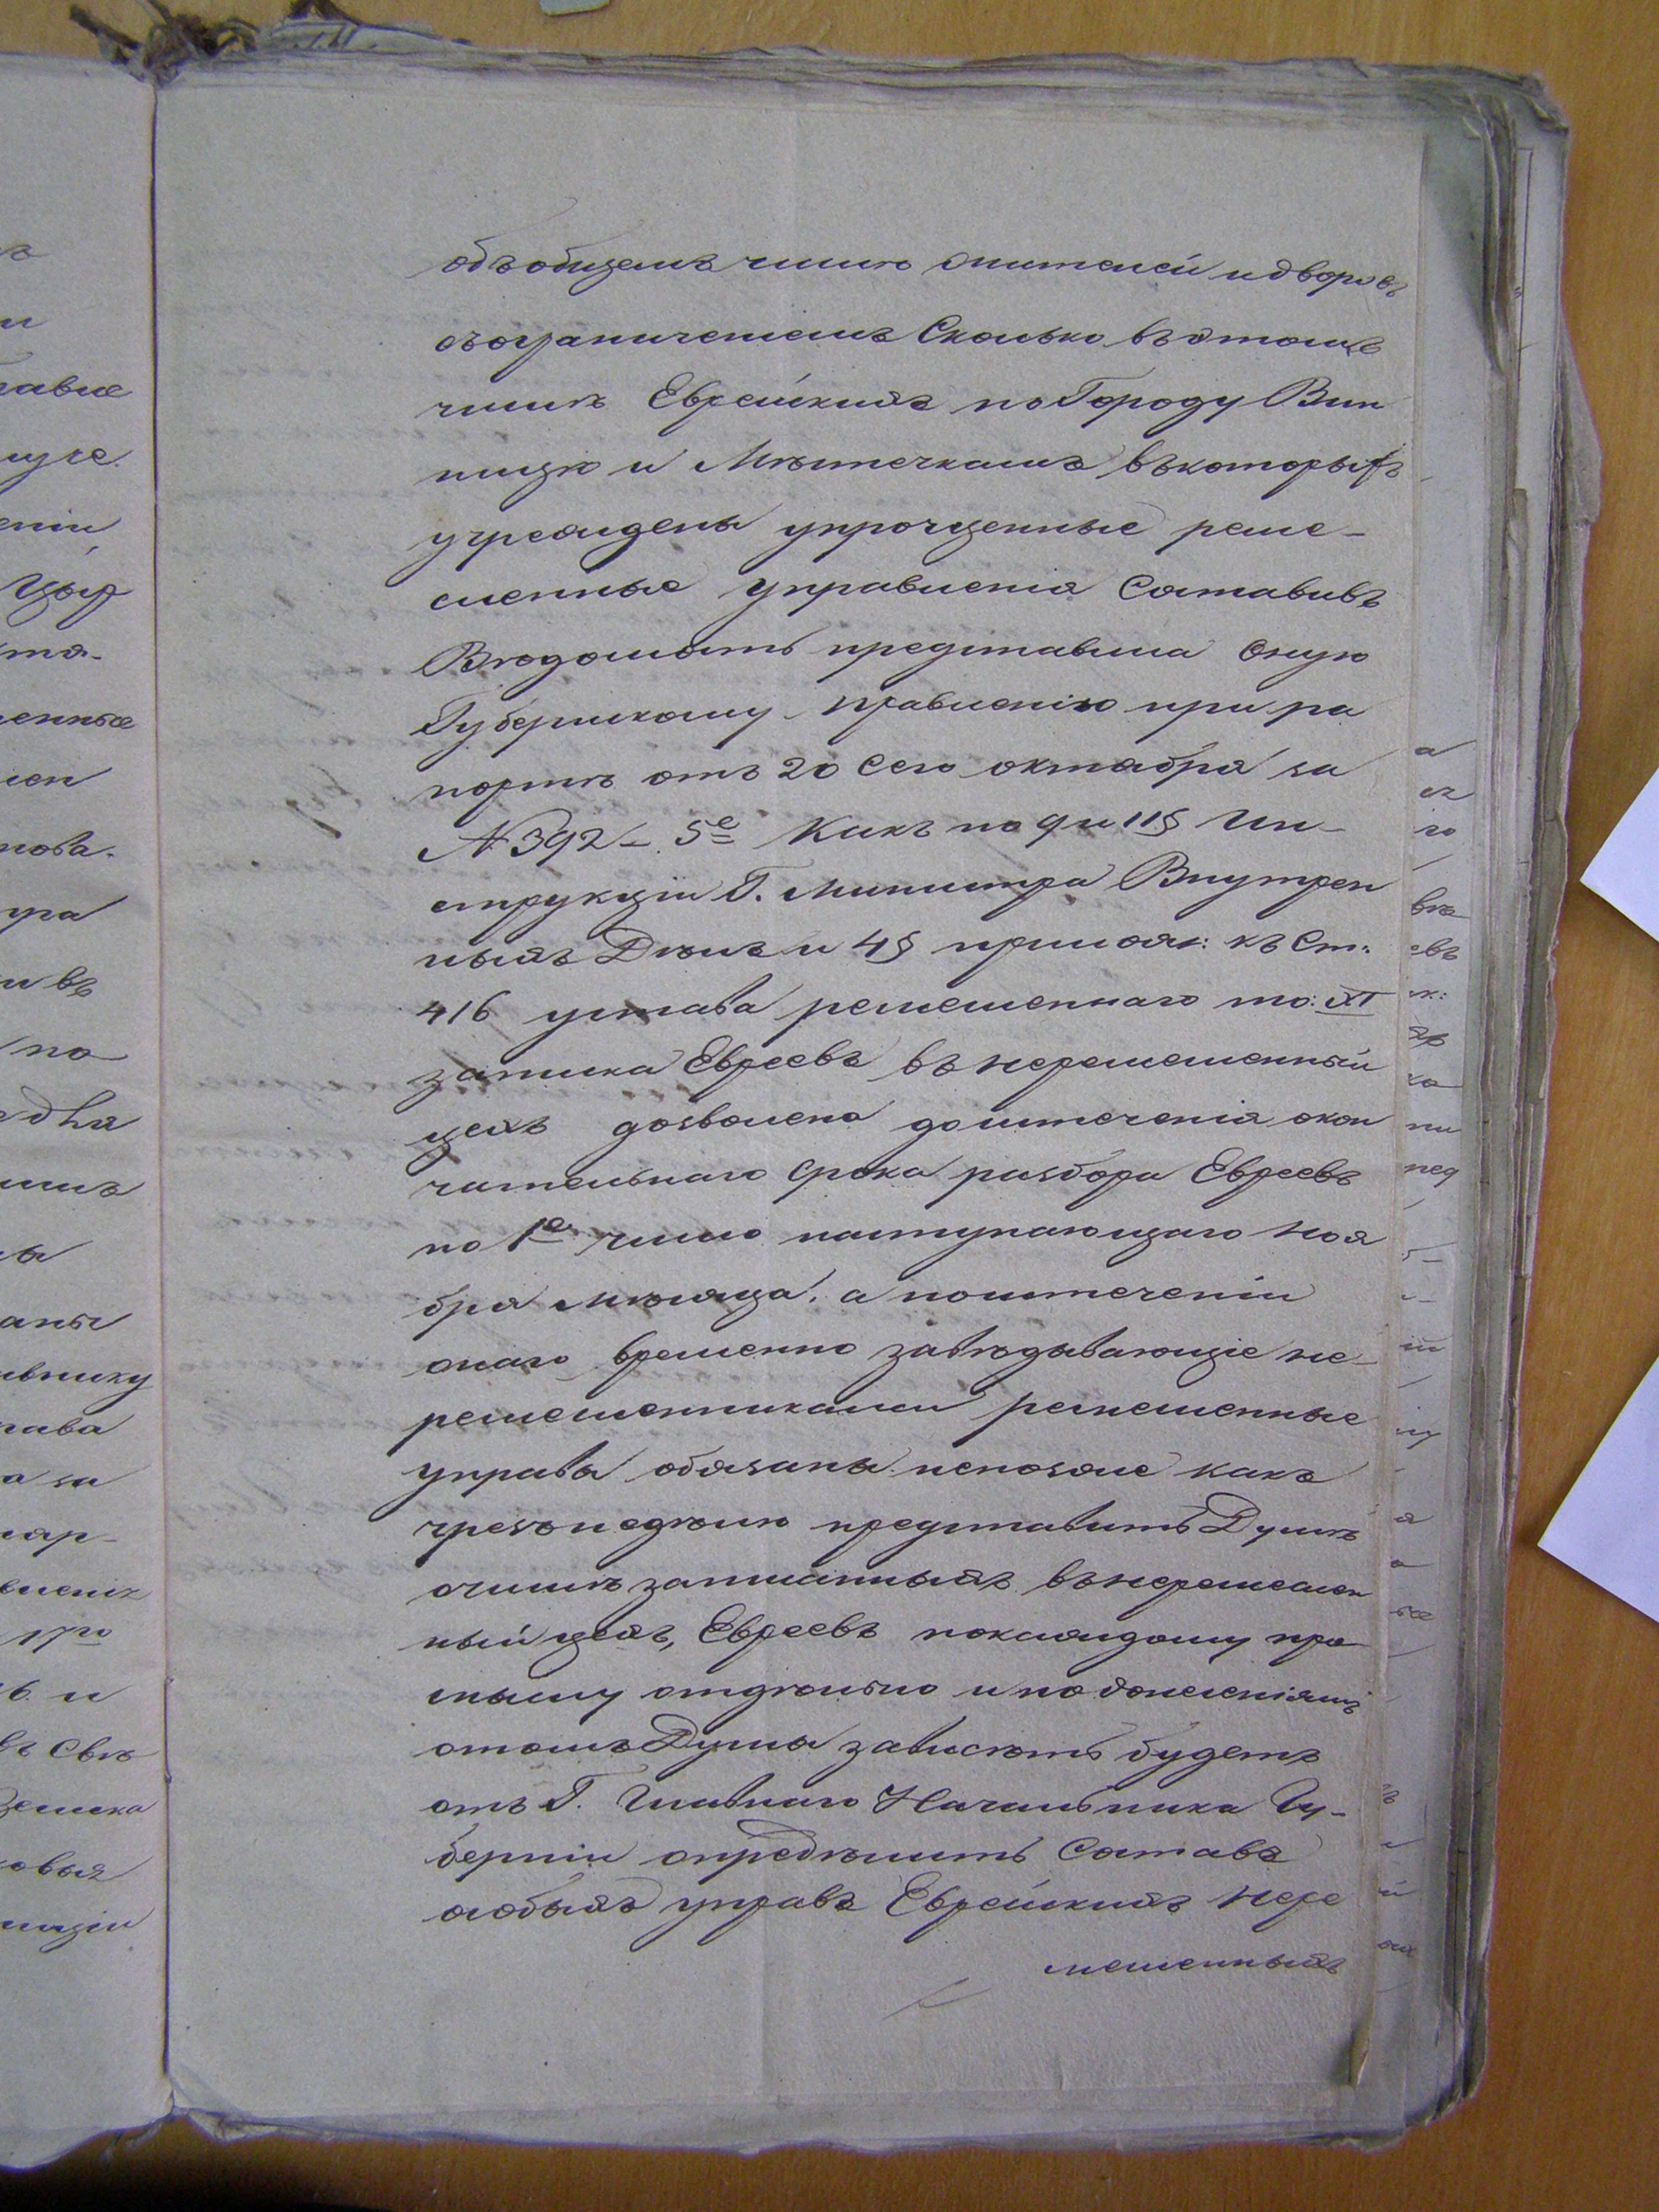 объ общемъ числѣ жителей и дворовъ
съ ограниченіемъ Сколько въ этомъ
числѣ Еврейскихъ по Городу Вин
ницѣ и Мѣстечкамъ въ которыхъ
учреждены упрощенные реме-
сленные управленія Составивъ
Вѣдомость представила Оную
Губернскому правленію при ра
портѣ отъ 20 Сего октября за
№ 392 – 5е Какъ по 9 и 11§ Ин-
струкціи Г. Министра Внутрен
ныхъ Дѣлъ и 4§ прилож: къ Ст:
416 устава ремесленнаго то: XI
записка Евреевъ въ неремесленный
цехъ дозволена до истеченія окон
чательнаго Срока разбора Евреевъ
по 1е число наступающаго Ноя
бря мѣсяца, а по истеченіи
онаго временно завѣдывающіе не-
ремесленниками ремесленные
управы обязаны непозже какъ
чрезъ неделю представить Думѣ
очислѣ записанныхъ въ неремеслен
ный цехъ, Евреевъ по каждому про
мыслу отдѣльно и по донесеніямъ
отомъ Думы зависѣть будетъ
отъ Г. Главнаго Начальника Гу-
берніи опредѣлить Составъ
особыхъ управъ Еврейскихъ Нере
месленныхъ